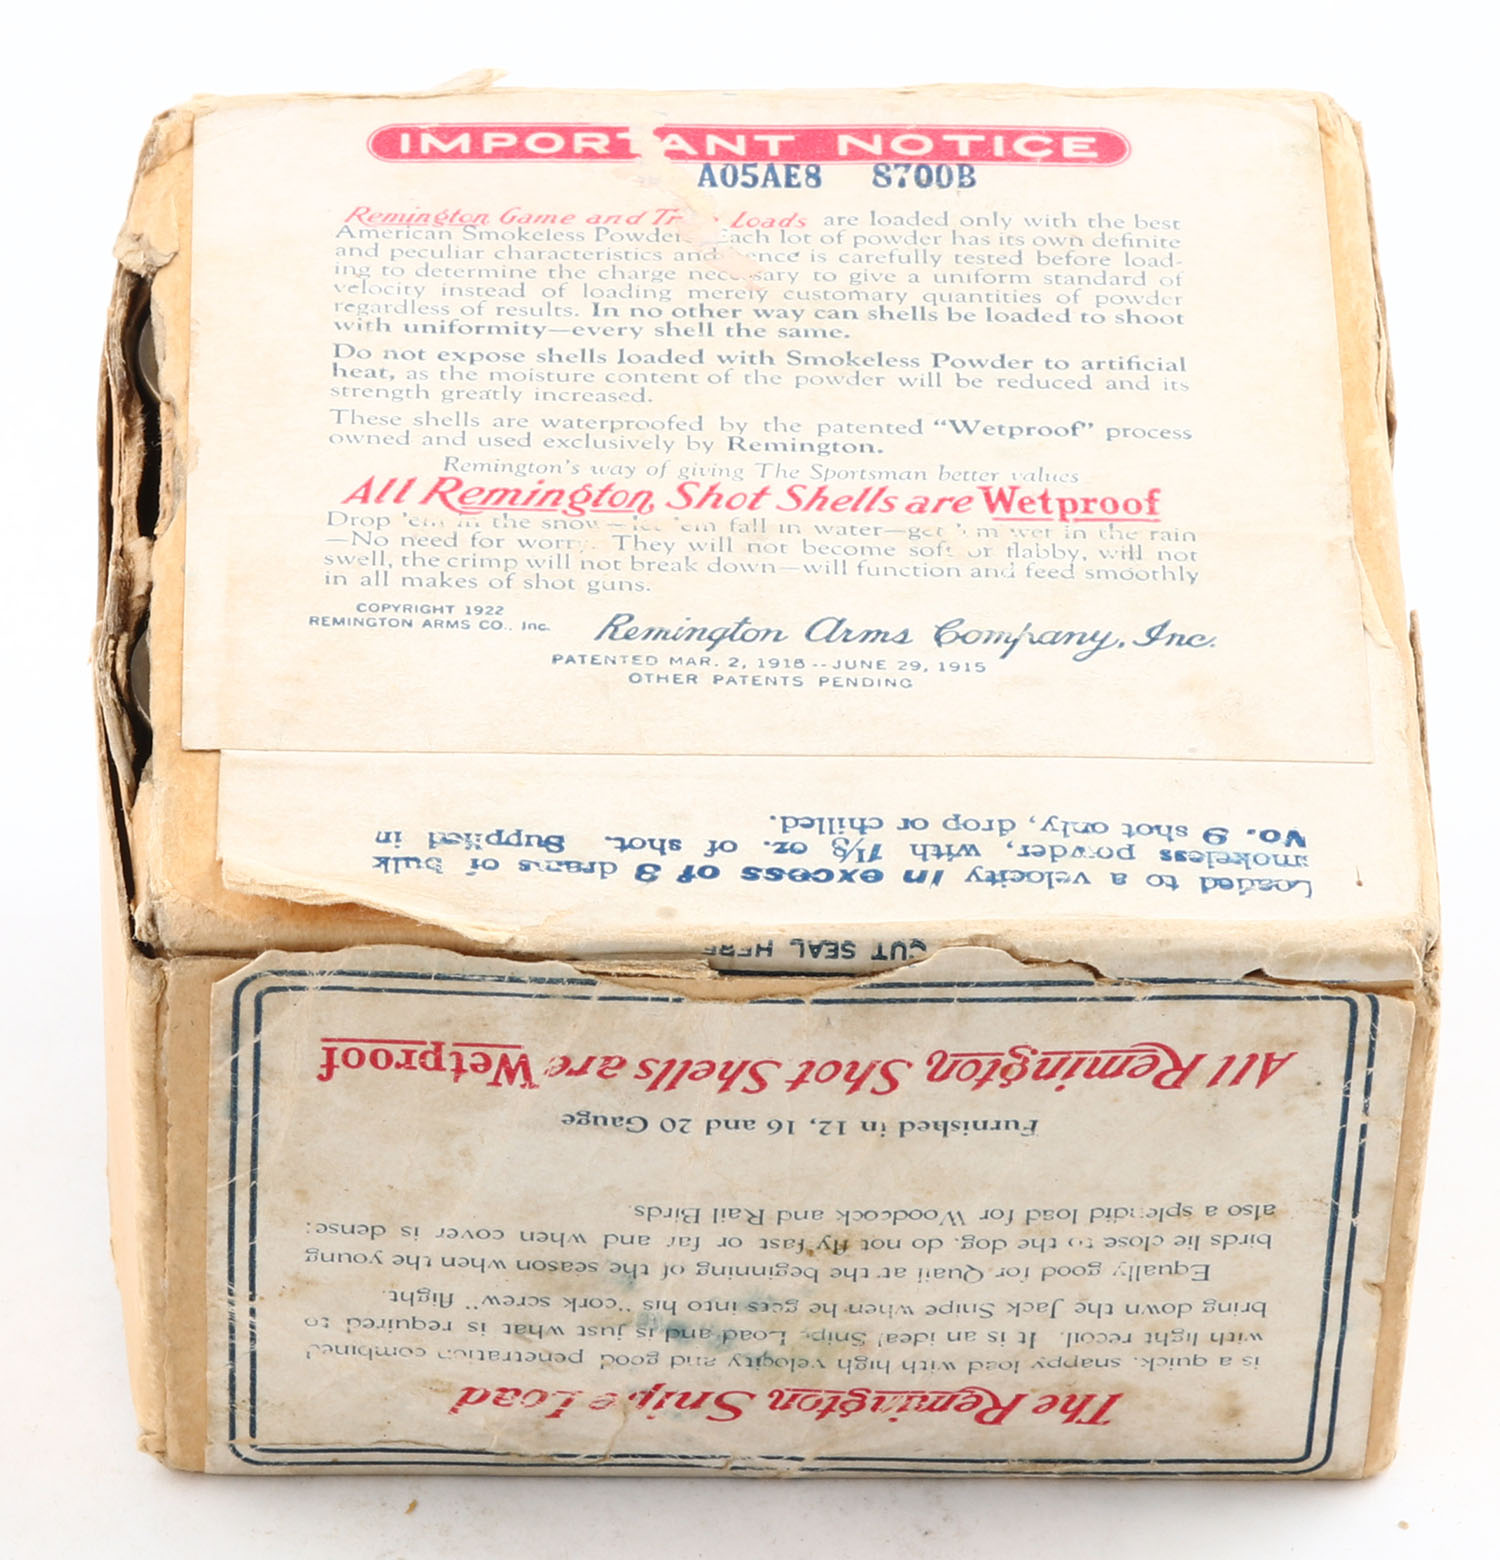 IMPORTANT NOTICE
A05AE8 8700B
Remington Game and Loads are loaded only with the best
American Smokeless Powder. Each lot of powder has its own definite
and peculiar characteristics and hence is carefully tested before load-
ing to determine the charge necessary to give a uniform standard of
velocity instead of loading merely customary quantities of powder
regardless of results. In no other way can shells be loaded to shoot
with uniformity—every shell the same.
Do not expose shells loaded with Smokeless Powder to artificial
heat, as the moisture content of the powder will be reduced and its
strength greatly increased.
These shells are waterproofed by the patented "Wetproof" process
owned and used exclusively by Remington.
Remington's way of giving The Sportsman better values
All Remington Shot Shells are Wetproof
Drop 'em in the snow—let 'em fall in water—get 'em wet in the rain
—No need for worry. They will not become soft or flabby, will not
swell, the crimp will not break down—will function and feed smoothly
in all makes of shot guns.
COPYRIGHT 1922
REMINGTON ARMS CO., Inc.
Remington Arms Company, Inc.
PATENTED MAR. 2, -- JUNE 29, 1915
OTHER PATENTS PENDING
Loaded to a velocity in excess of 3 drams of bulk
smokeless powder, with 1⅛ oz. of shot. Supplied in
No. 9 shot only, drop or chilled.
CUT SEAL HERE
The Remington Snipe Load
is a quick, snappy load with high velocity and good penetration combined
with light recoil. It is an ideal Snipe Load and is just what is required to
bring down the Jack Snipe when he gets into his "cork screw" flight.
Equally good for Quail at the beginning of the season when the young
birds lie close to the dog, do not fly fast or far and when cover is dense;
also a splendid load for Woodcock and Rail Birds.
Furnished in 12, 16 and 20 Gauge
All Remington Shot Shells are Wetproof